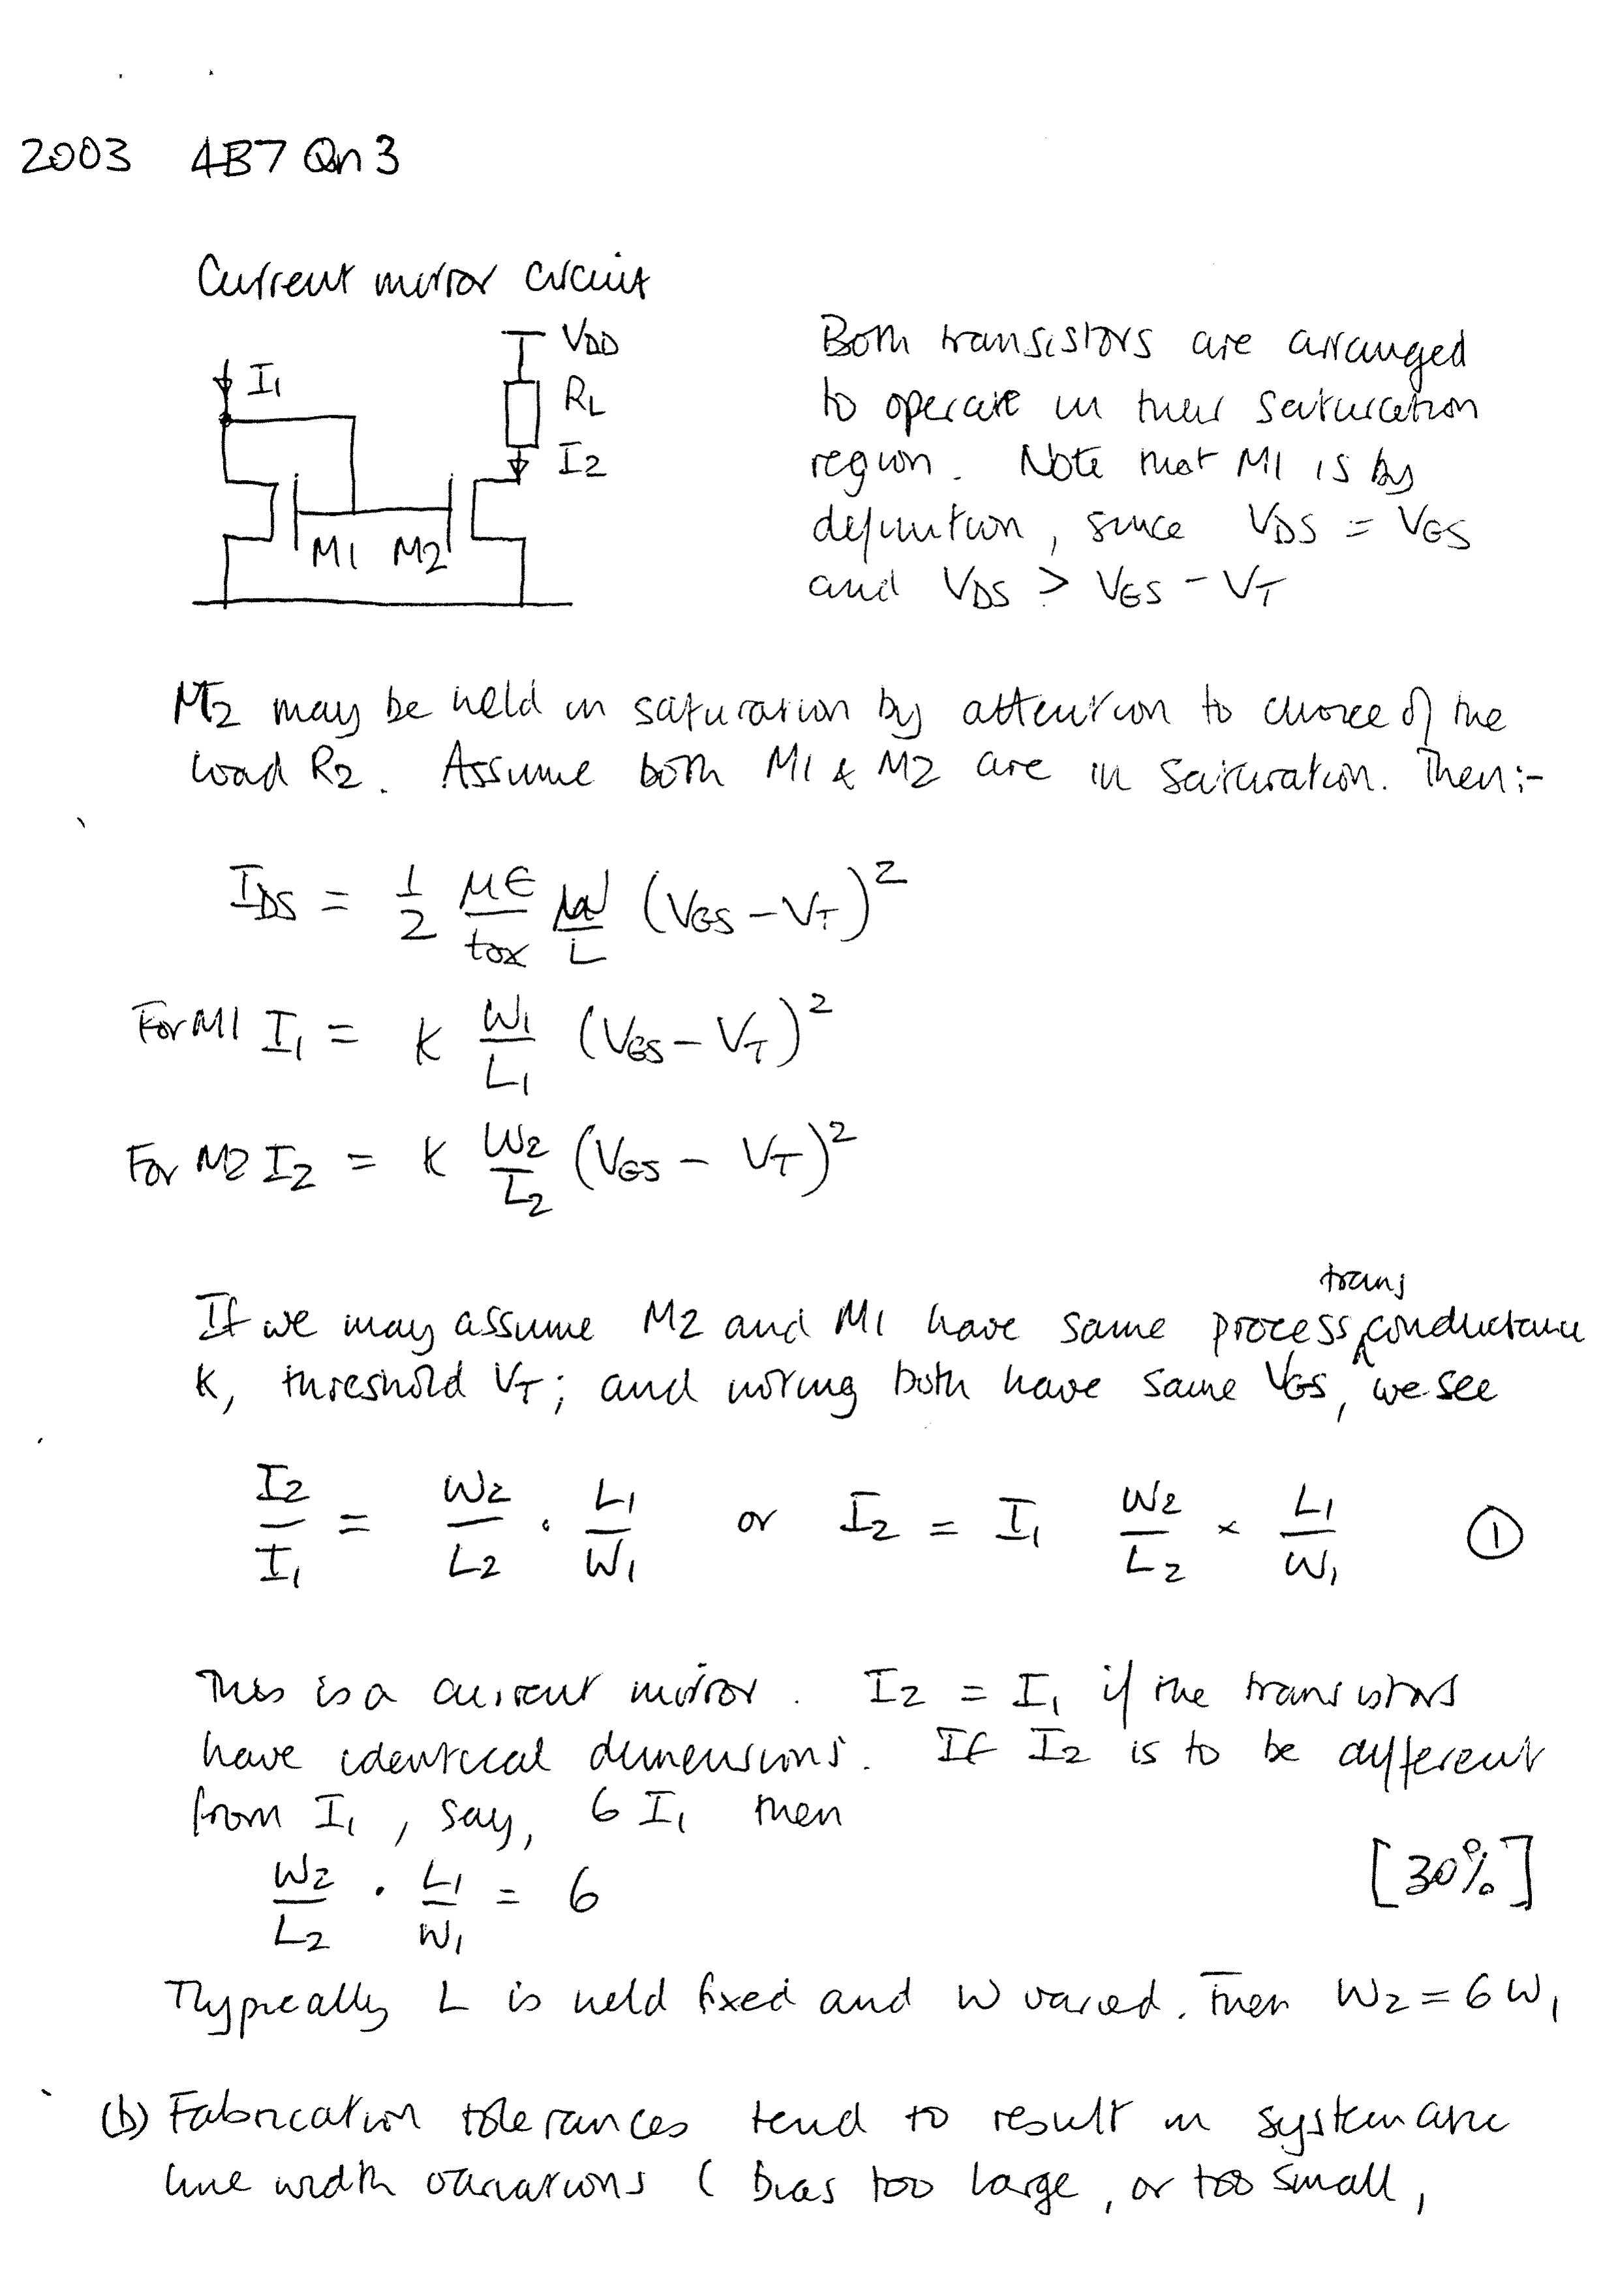 2003 4B7 Qn 3
Current mirror circuit
I1
VDD
RL
I2
M1 M2
Both transistors are arranged
to operate in their saturation
region. Note that M1 is by
definition, since VDS = VGS
and VDS > VGS - VT
M2 may be held in saturation by attention to choice of the
load R2. Assume both M1 & M2 are in saturation. Then:-
IDS = 1/2 με/tox W/L (VGS - VT)²
For M1 I1 = K W1/L1 (VGS - VT)²
For M2 I2 = K W2/L2 (VGS - VT)²
If we may assume M2 and M1 have same process transconductance
K, threshold VT; and noting both have same VGS, we see
I2/I1 = W2/L2 . L1/W1 or I2 = I1 W2/L2 × L1/W1 ①
This is a current mirror. I2 = I1 if the transistors
have identical dimensions. If I2 is to be different
from I1, say, 6 I1 then
W2/L2 . L1/W1 = 6 [30%]
Thypically L is held fixed and W varied. Then W2 = 6 W1
(b) Fabrication tolerances tend to result in systematic
line width variations ( bias too large, or too small,